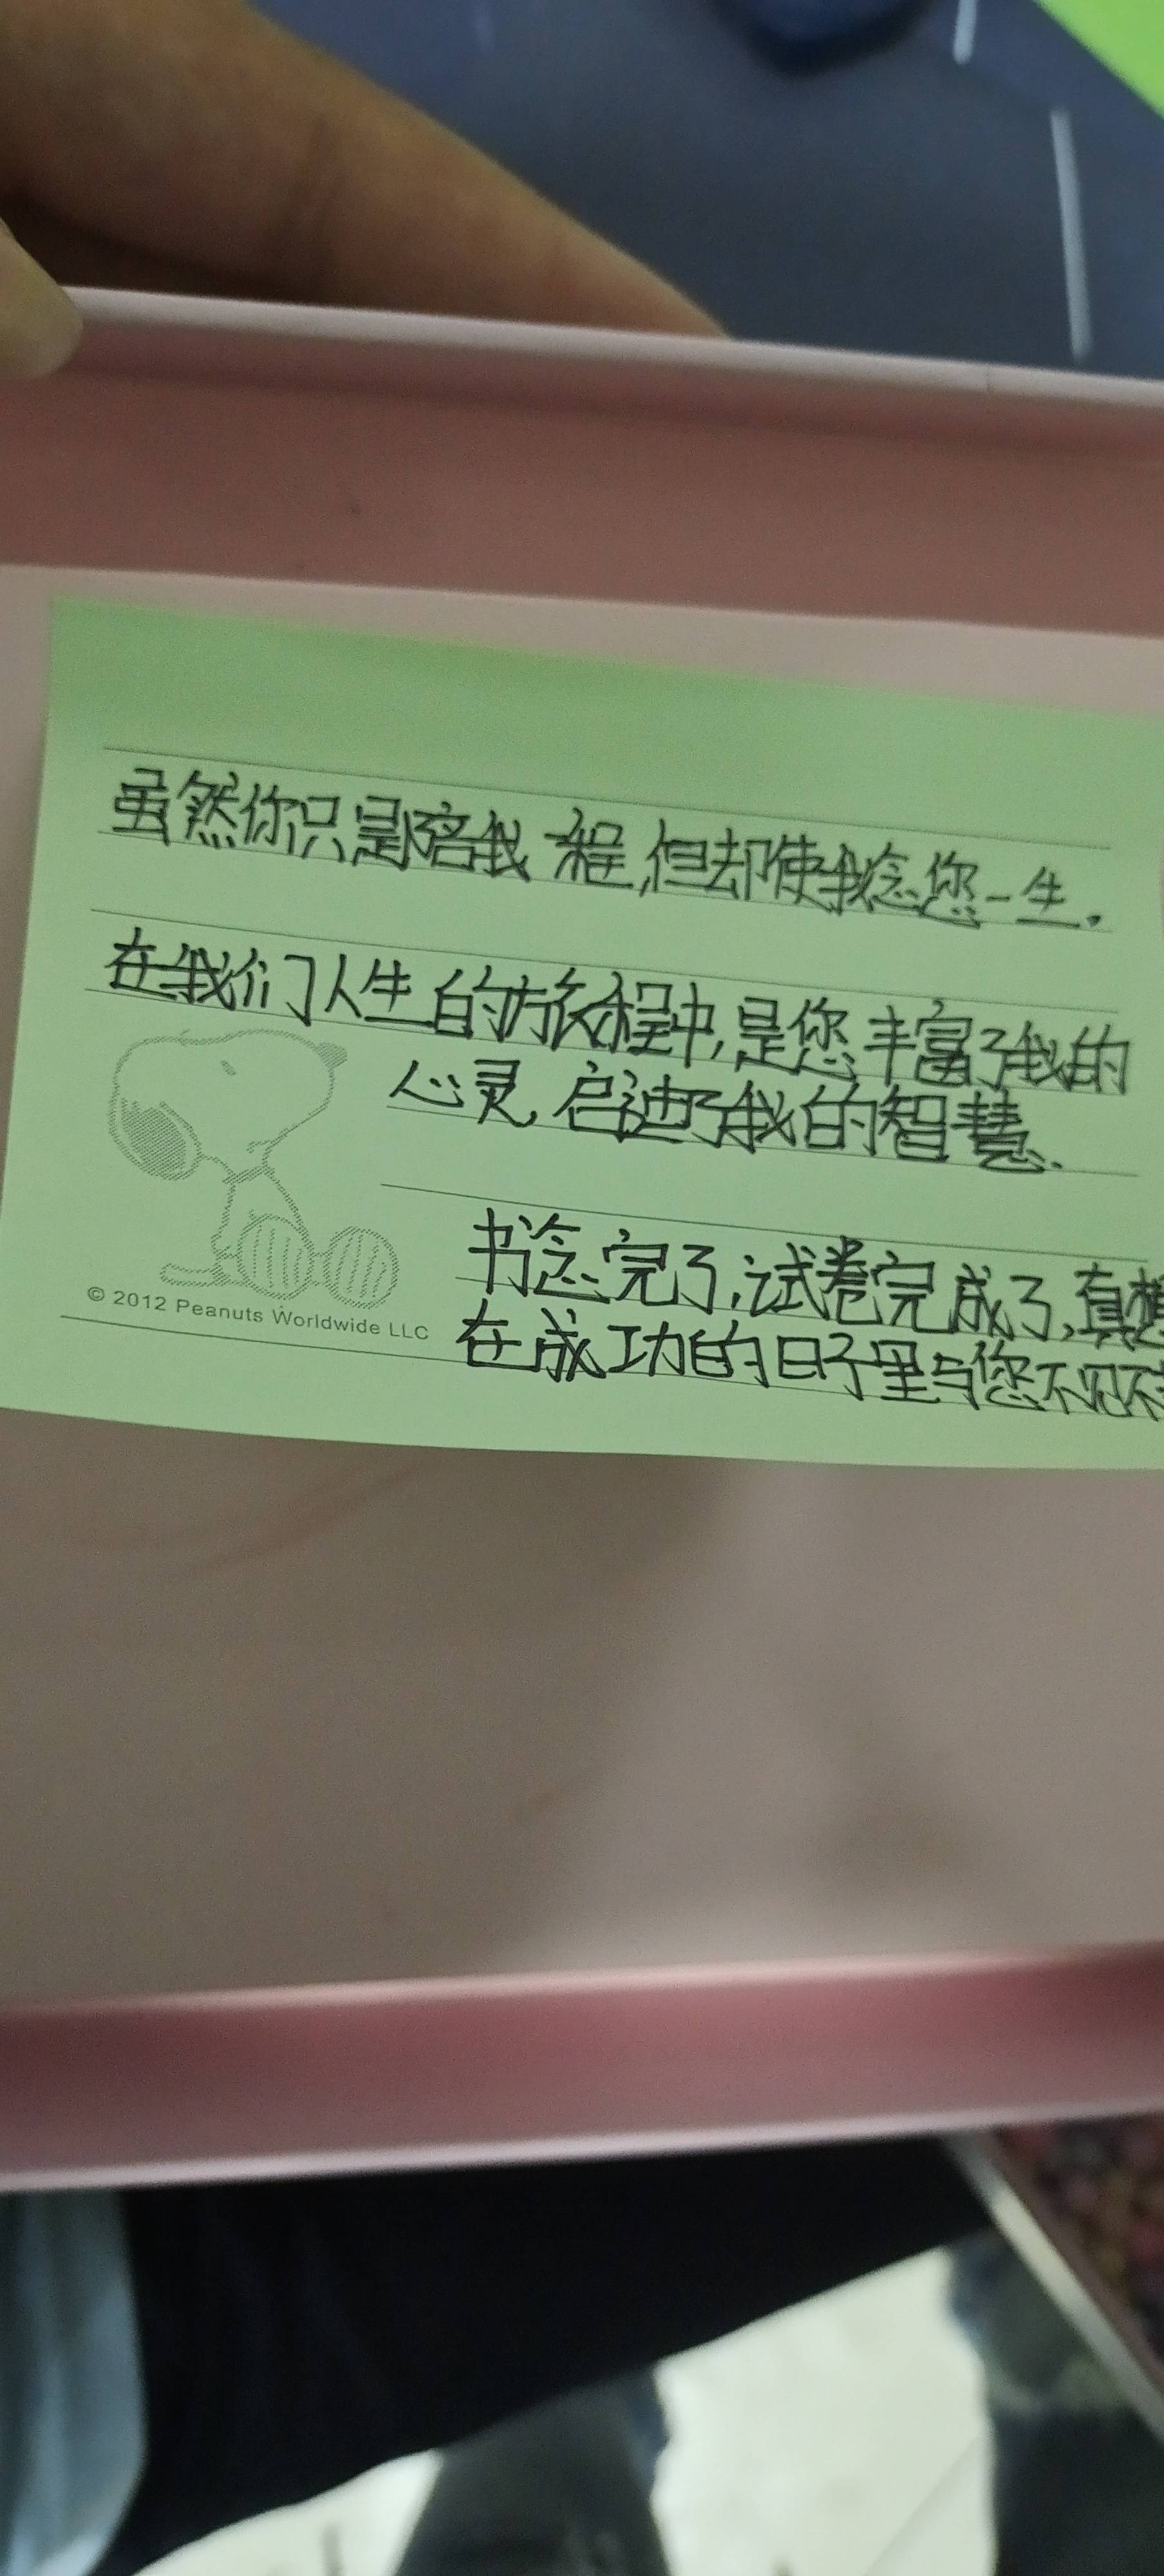 虽然你只是陪我一程,但却使我念您一生。
在我们人生的旅程中,是您丰富了我的
心灵,启迪了我的智慧.
书念完了,试卷完成了,真想
在成功的日子里与您不见不
© 2012 Peanuts Worldwide LLC